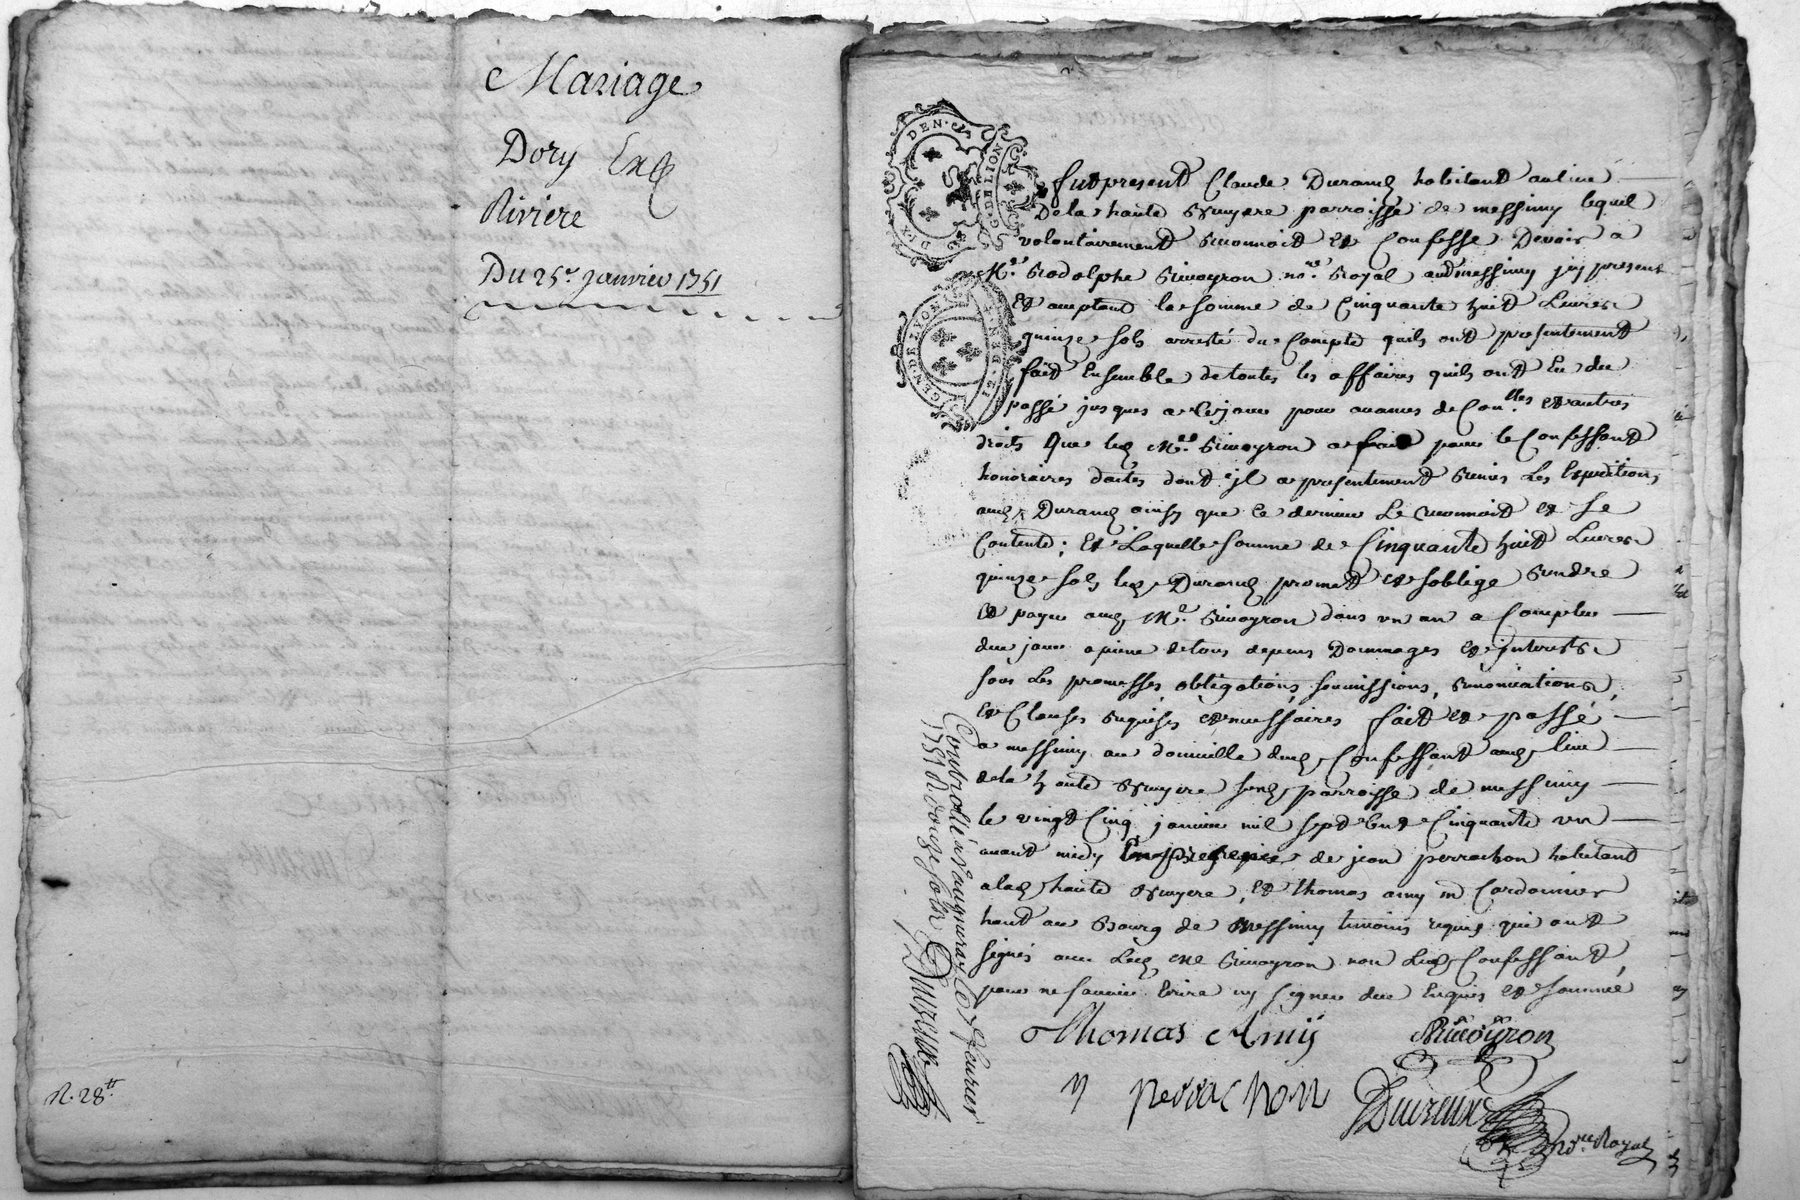 Mariage
Dory Et
Riviere
Du 25e. janvier 1751
R. 28tt
DIX DEN.
G. DE LION
GEN DE LYON
Fut present Claude Durand habitant au lieu
De la haute Bruyere parroisse de messimy lequel
volontairement Reconnoit et Confesse Devoir a
Mr. Rodolphe Rivoyron nore. Royal audt messimy jcy present
Et acceptant la somme de Cinquante huit Livres
quinze sols arresté du Compte quils ont presentement
fait Ensemble de toutes les affaires quils ont Eu du
passé jusques a ce jour pour avances de Conlles et autres
droits Que led Mre. Rivoyron a fait pour le Confessant
honoraires d'actes dont jl a presentement Remis Les Expeditions
aud Durand ainsy que ce dernier Le reconnoit et se
Contente; Et Laquelle somme de Cinquante huit Livres
quinze sols led Durand promet et soblige Rendre
et payer aud Mre. Rivoyron dans un an a Compter
du jour a peine de tous depens Dommages et jnterests
sous Les promesses, obligations, soumissions, Renonciations,
Et Clauses requises et necessaires fait et passé
a messimy au domicille dud Confessant aud lieu
de la haute Bruyere susd parroisse de messimy
le vingt Cinq janvier mil sept Cent Cinquante un
avant midy En presence de jean perrachon habitant
a lad haute Bruyere, et thomas amy md Cordonnier
habt au Bourg de Messimy temoins requis qui ont
signés avec Led Me Rivoyron non Led Confessant
pour ne sçavoir Ecrire ny signer de ce Enquis et sommé
Thomas Amy Rivoyron
perrachon
nore. Royal
Controllé a le 7 fevrier
1751 R douze sols